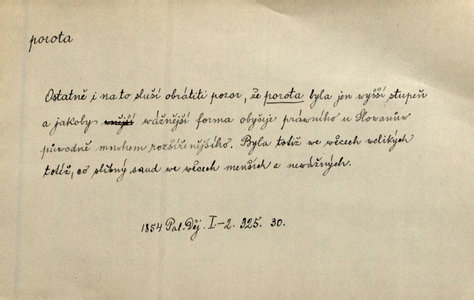 porota
Ostatně i na to sluší obrátiti pozor, že porota byla jen vyšší stupeň
a jakoby vážnější forma obyčeje právního u Slovanův
původně mnohem rozšířenějšího. Byla totiž we věcech velikých
totéž, co slibný saud we věcech menších a neważných.
1854 Pal. Děj. I-2. 225. 30.